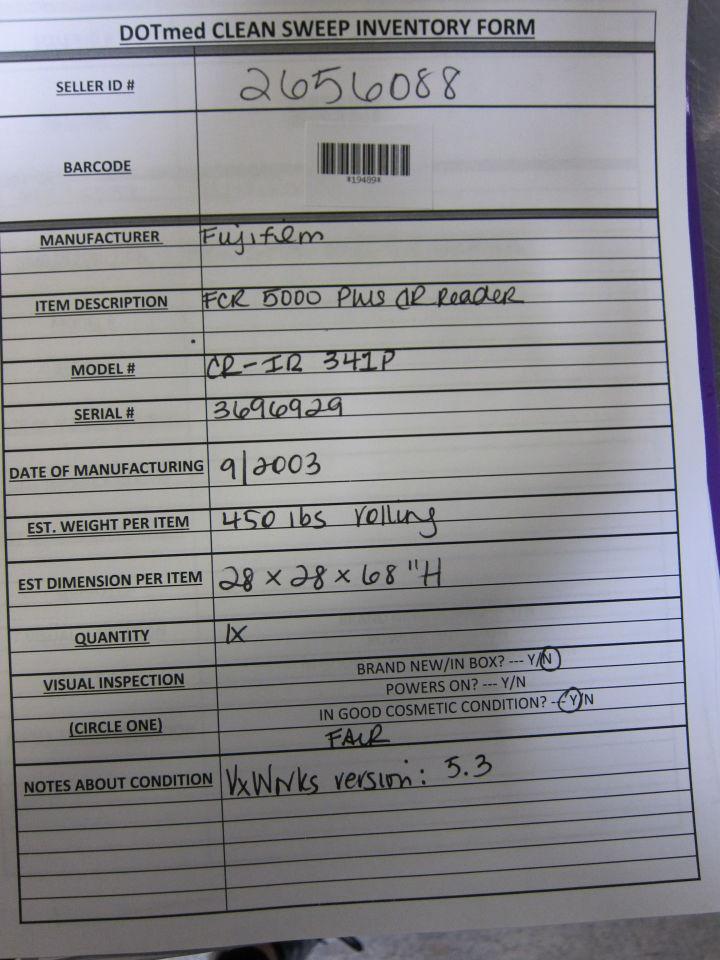 DOTmed CLEAN SWEEP INVENTORY FORM
SELLER ID # 2656088
BARCODE
*19489*
MANUFACTURER Fujifilm
ITEM DESCRIPTION FCR 5000 Plus CR Reader
MODEL # CR-IR 341P
SERIAL # 3696929
DATE OF MANUFACTURING 9/2003
EST. WEIGHT PER ITEM 450 lbs rolling
EST DIMENSION PER ITEM 28 x 28 x 68 "H
QUANTITY 1x
VISUAL INSPECTION
(CIRCLE ONE)
BRAND NEW/IN BOX? --- Y/N
POWERS ON? --- Y/N
IN GOOD COSMETIC CONDITION? --- Y/N
FAIR
NOTES ABOUT CONDITION VxWrks version: 5.3